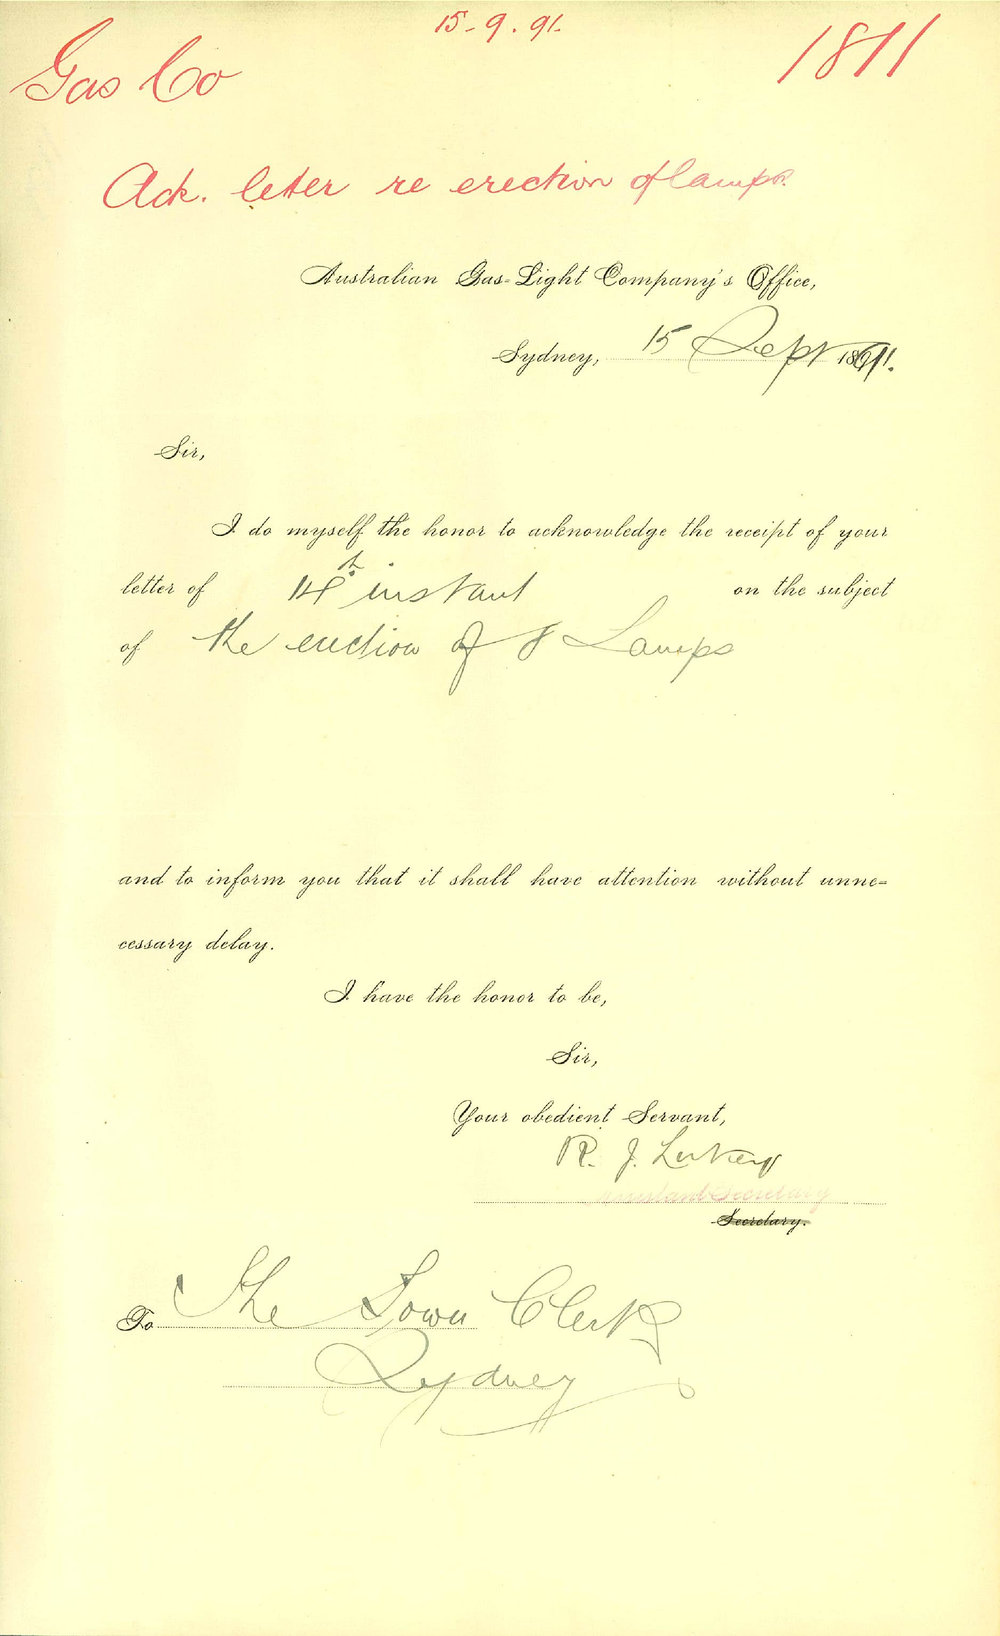 15-9.91.
Gas Co
1811
Ack. letter re erection of lamps.
Australian Gas-Light Company's Office,
Sydney, 15 Sept 1891.
Sir,
I do myself the honor to acknowledge the receipt of your
letter of 14th instant on the subject
of the erection of 8 Lamps
and to inform you that it shall have attention without unne-
cessary delay.
I have the honor to be,
Sir,
Your obedient Servant,
R. J. Lukey
Assistant Secretary
Secretary.
To The Town Clerk
Sydney